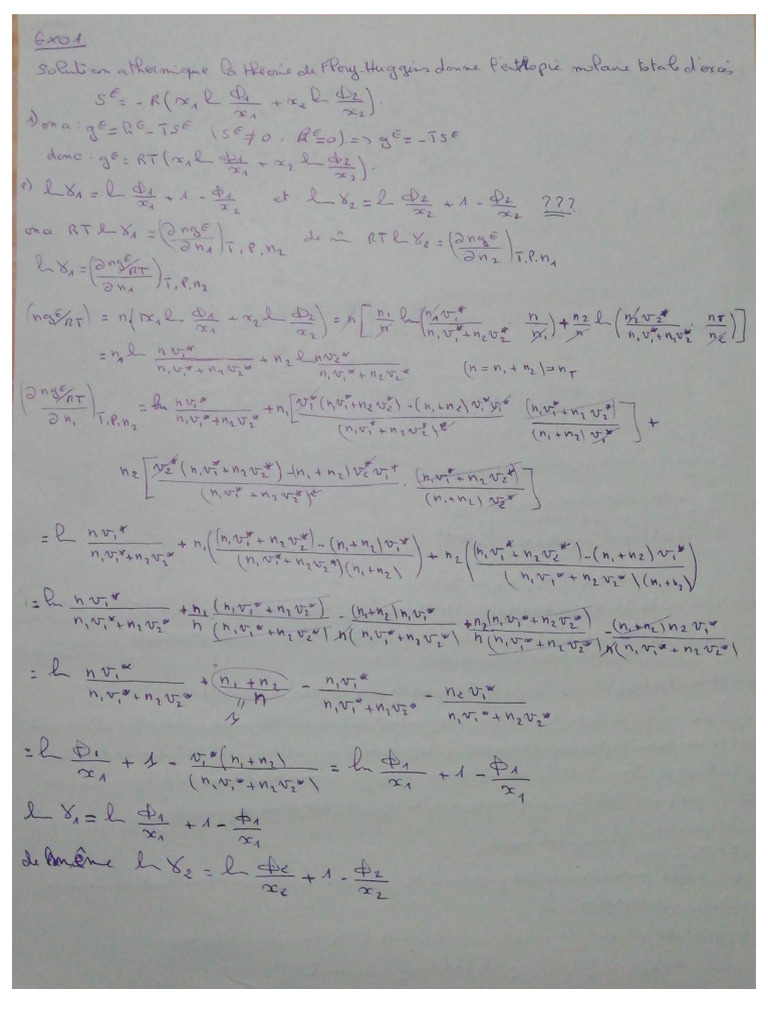 Exo1
Solution athermique la théorie de Flory-Huggins donne l'enthopie molaire totale d'excés
S^E = -R(x₁ ln Φ₁/x₁ + x₂ ln Φ₂/x₂).
1) on a : g^E = h^E - TS^E (S^E ≠ 0 . h^E = 0) => g^E = -TS^E
donc : g^E = RT(x₁ ln Φ₁/x₁ + x₂ ln Φ₂/x₂).
ln γ₁ = ln Φ₁/x₁ + 1 - Φ₁/x₂ et ln γ₂ = ln Φ₂/x₂ + 1 - Φ₂/x₂ ???
on a RT ln γ₁ = (∂ng^E/∂n₁)T,P,n₂ de m̂ RT ln γ₂ = (∂ng^E/∂n₂)T,P,n₁
ln γ₁ = (∂ng^E/RT/∂n₁)T,P,n₂
(ng^E/RT) = n(x₁ ln Φ₁/x₁ + x₂ ln Φ₂/x₂) = n[n₁/n ln(n₁v₁*/(n₁v₁*+n₂v₂*) · n/n₁) + n₂/n ln(n₂v₂*/(n₁v₁*+n₂v₂*) · nT/n₂)]
= n₁ ln nv₁*/(n₁v₁*+n₂v₂*) + n₂ ln nv₂*/(n₁v₁*+n₂v₂*) (n = n₁ + n₂) = nT
(∂ng^E/RT/∂n₁)T,P,n₂ = ln nv₁*/(n₁v₁*+n₂v₂*) + n₁[(v₁*(n₁v₁*+n₂v₂*) - (n₁+n₂)v₁*v₁*)/(n₁v₁*+n₂v₂*)² (n₁v₁*+n₂v₂*)/((n₁+n₂)v₁*)] +
n₂[(v₂*(n₁v₁*+n₂v₂*) - (n₁+n₂)v₂*v₁*)/(n₁v₁*+n₂v₂*)² · (n₁v₁*+n₂v₂*)/((n₁+n₂)v₂*)]
= ln nv₁*/(n₁v₁*+n₂v₂*) + n₁(((n₁v₁*+n₂v₂*) - (n₁+n₂)v₁*)/((n₁v₁*+n₂v₂*)(n₁+n₂))) + n₂(((n₁v₁*+n₂v₂*) - (n₁+n₂)v₁*)/((n₁v₁*+n₂v₂*)(n₁+n₂)))
= ln nv₁*/(n₁v₁*+n₂v₂*) + n₁/n (n₁v₁*+n₂v₂*)/(n₁v₁*+n₂v₂*) - (n₁+n₂)n₁v₁*/n(n₁v₁*+n₂v₂*) + n₂(n₁v₁*+n₂v₂*)/n(n₁v₁*+n₂v₂*) - (n₁+n₂)n₂v₁*/n(n₁v₁*+n₂v₂*)
= ln nv₁*/(n₁v₁*+n₂v₂*) + (n₁+n₂)/n - n₁v₁*/(n₁v₁*+n₂v₂*) - n₂v₁*/(n₁v₁*+n₂v₂*)
= 1
= ln Φ₁/x₁ + 1 - v₁*(n₁+n₂)/(n₁v₁*+n₂v₂*) = ln Φ₁/x₁ + 1 - Φ₁/x₁
ln γ₁ = ln Φ₁/x₁ + 1 - Φ₁/x₁
de même ln γ₂ = ln Φ₂/x₂ + 1 - Φ₂/x₂